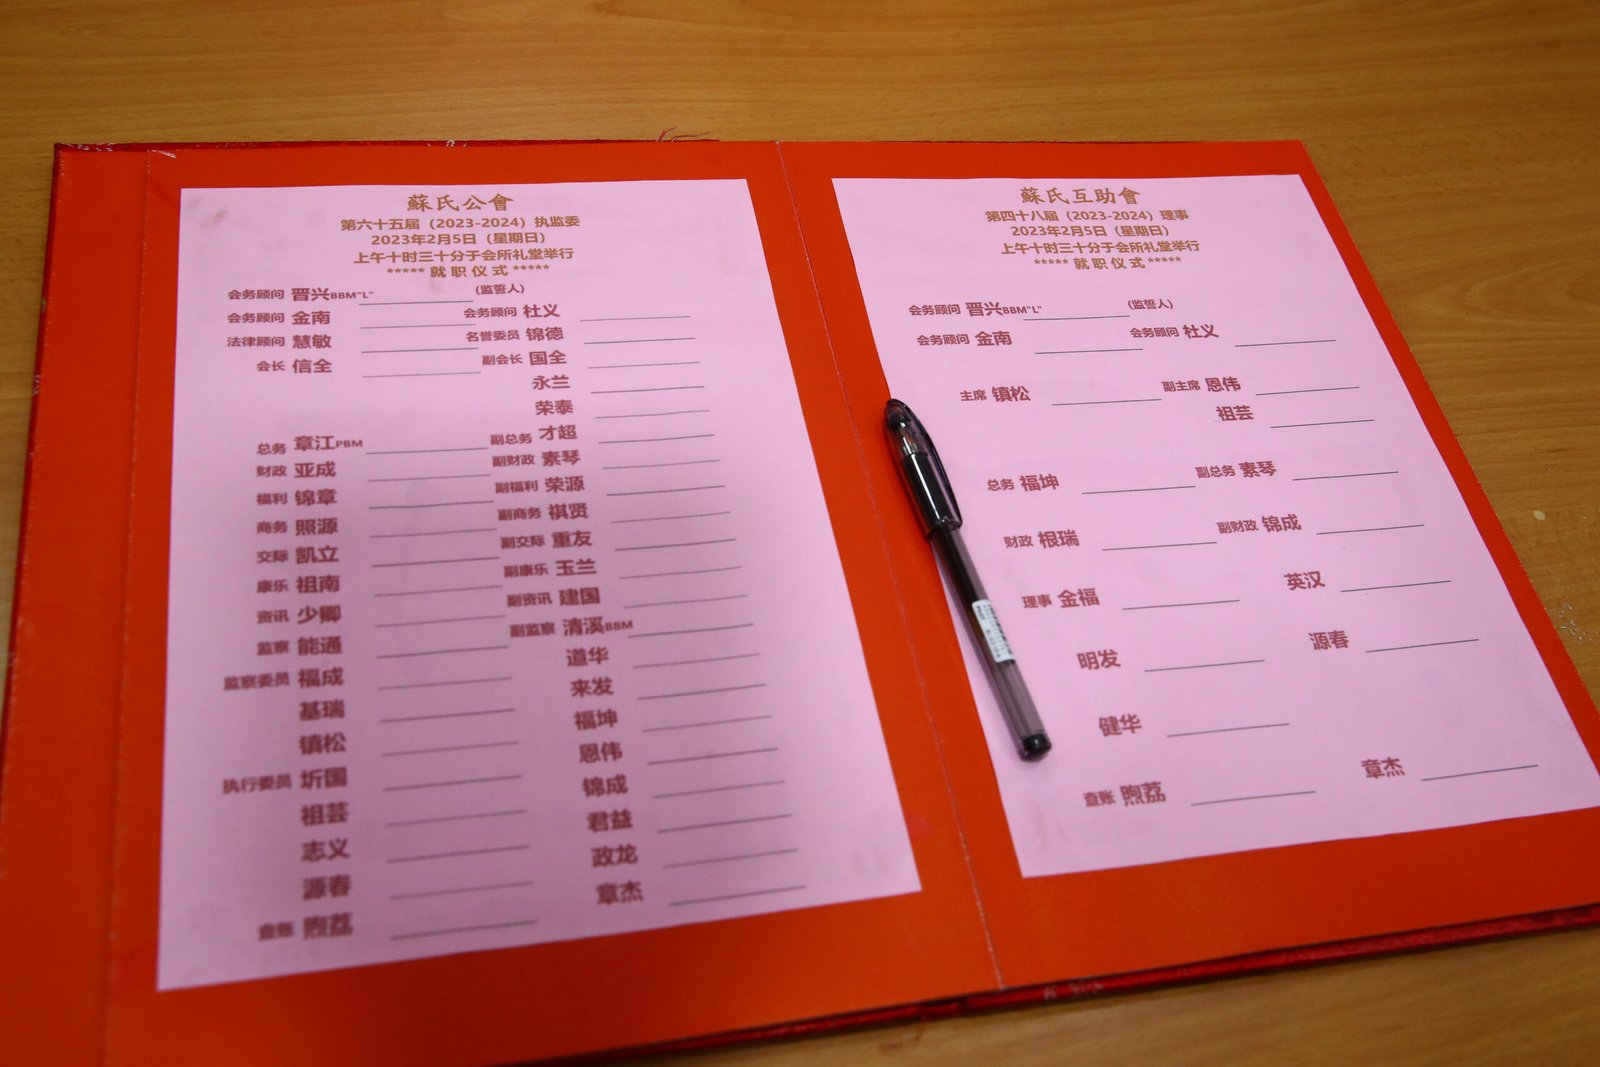 蘇氏公會
第六十五届（2023-2024）执监委
2023年2月5日（星期日）
上午十时三十分于会所礼堂举行
***** 就职仪式 *****
会务顾问 晋兴BBM"L" （监誓人）
会务顾问 金南 会务顾问 杜义
法律顾问 慧敏 名誉委员 锦德
会长 信全 副会长 国全
永兰
荣泰
总务 章江PBM 副总务 才超
财政 亚成 副财政 素琴
福利 锦章 副福利 荣源
商务 照源 副商务 祺贤
交际 凯立 副交际 重友
康乐 祖南 副康乐 玉兰
资讯 少卿 副资讯 建国
监察 能通 副监察 清溪BBM
监察委员 福成 道华
基瑞 来发
镇松 福坤
执行委员 圻国 恩伟
祖芸 锦成
志义 君益
源春 政龙
查账 煦荔 章杰
蘇氏互助會
第四十八届（2023-2024）理事
2023年2月5日（星期日）
上午十时三十分于会所礼堂举行
***** 就职仪式 *****
会务顾问 晋兴BBM"L" （监誓人）
会务顾问 金南 会务顾问 杜义
主席 镇松 副主席 恩伟
祖芸
总务 福坤 副总务 素琴
财政 根瑞 副财政 锦成
理事 金福 英汉
明发 源春
健华
查账 煦荔 章杰